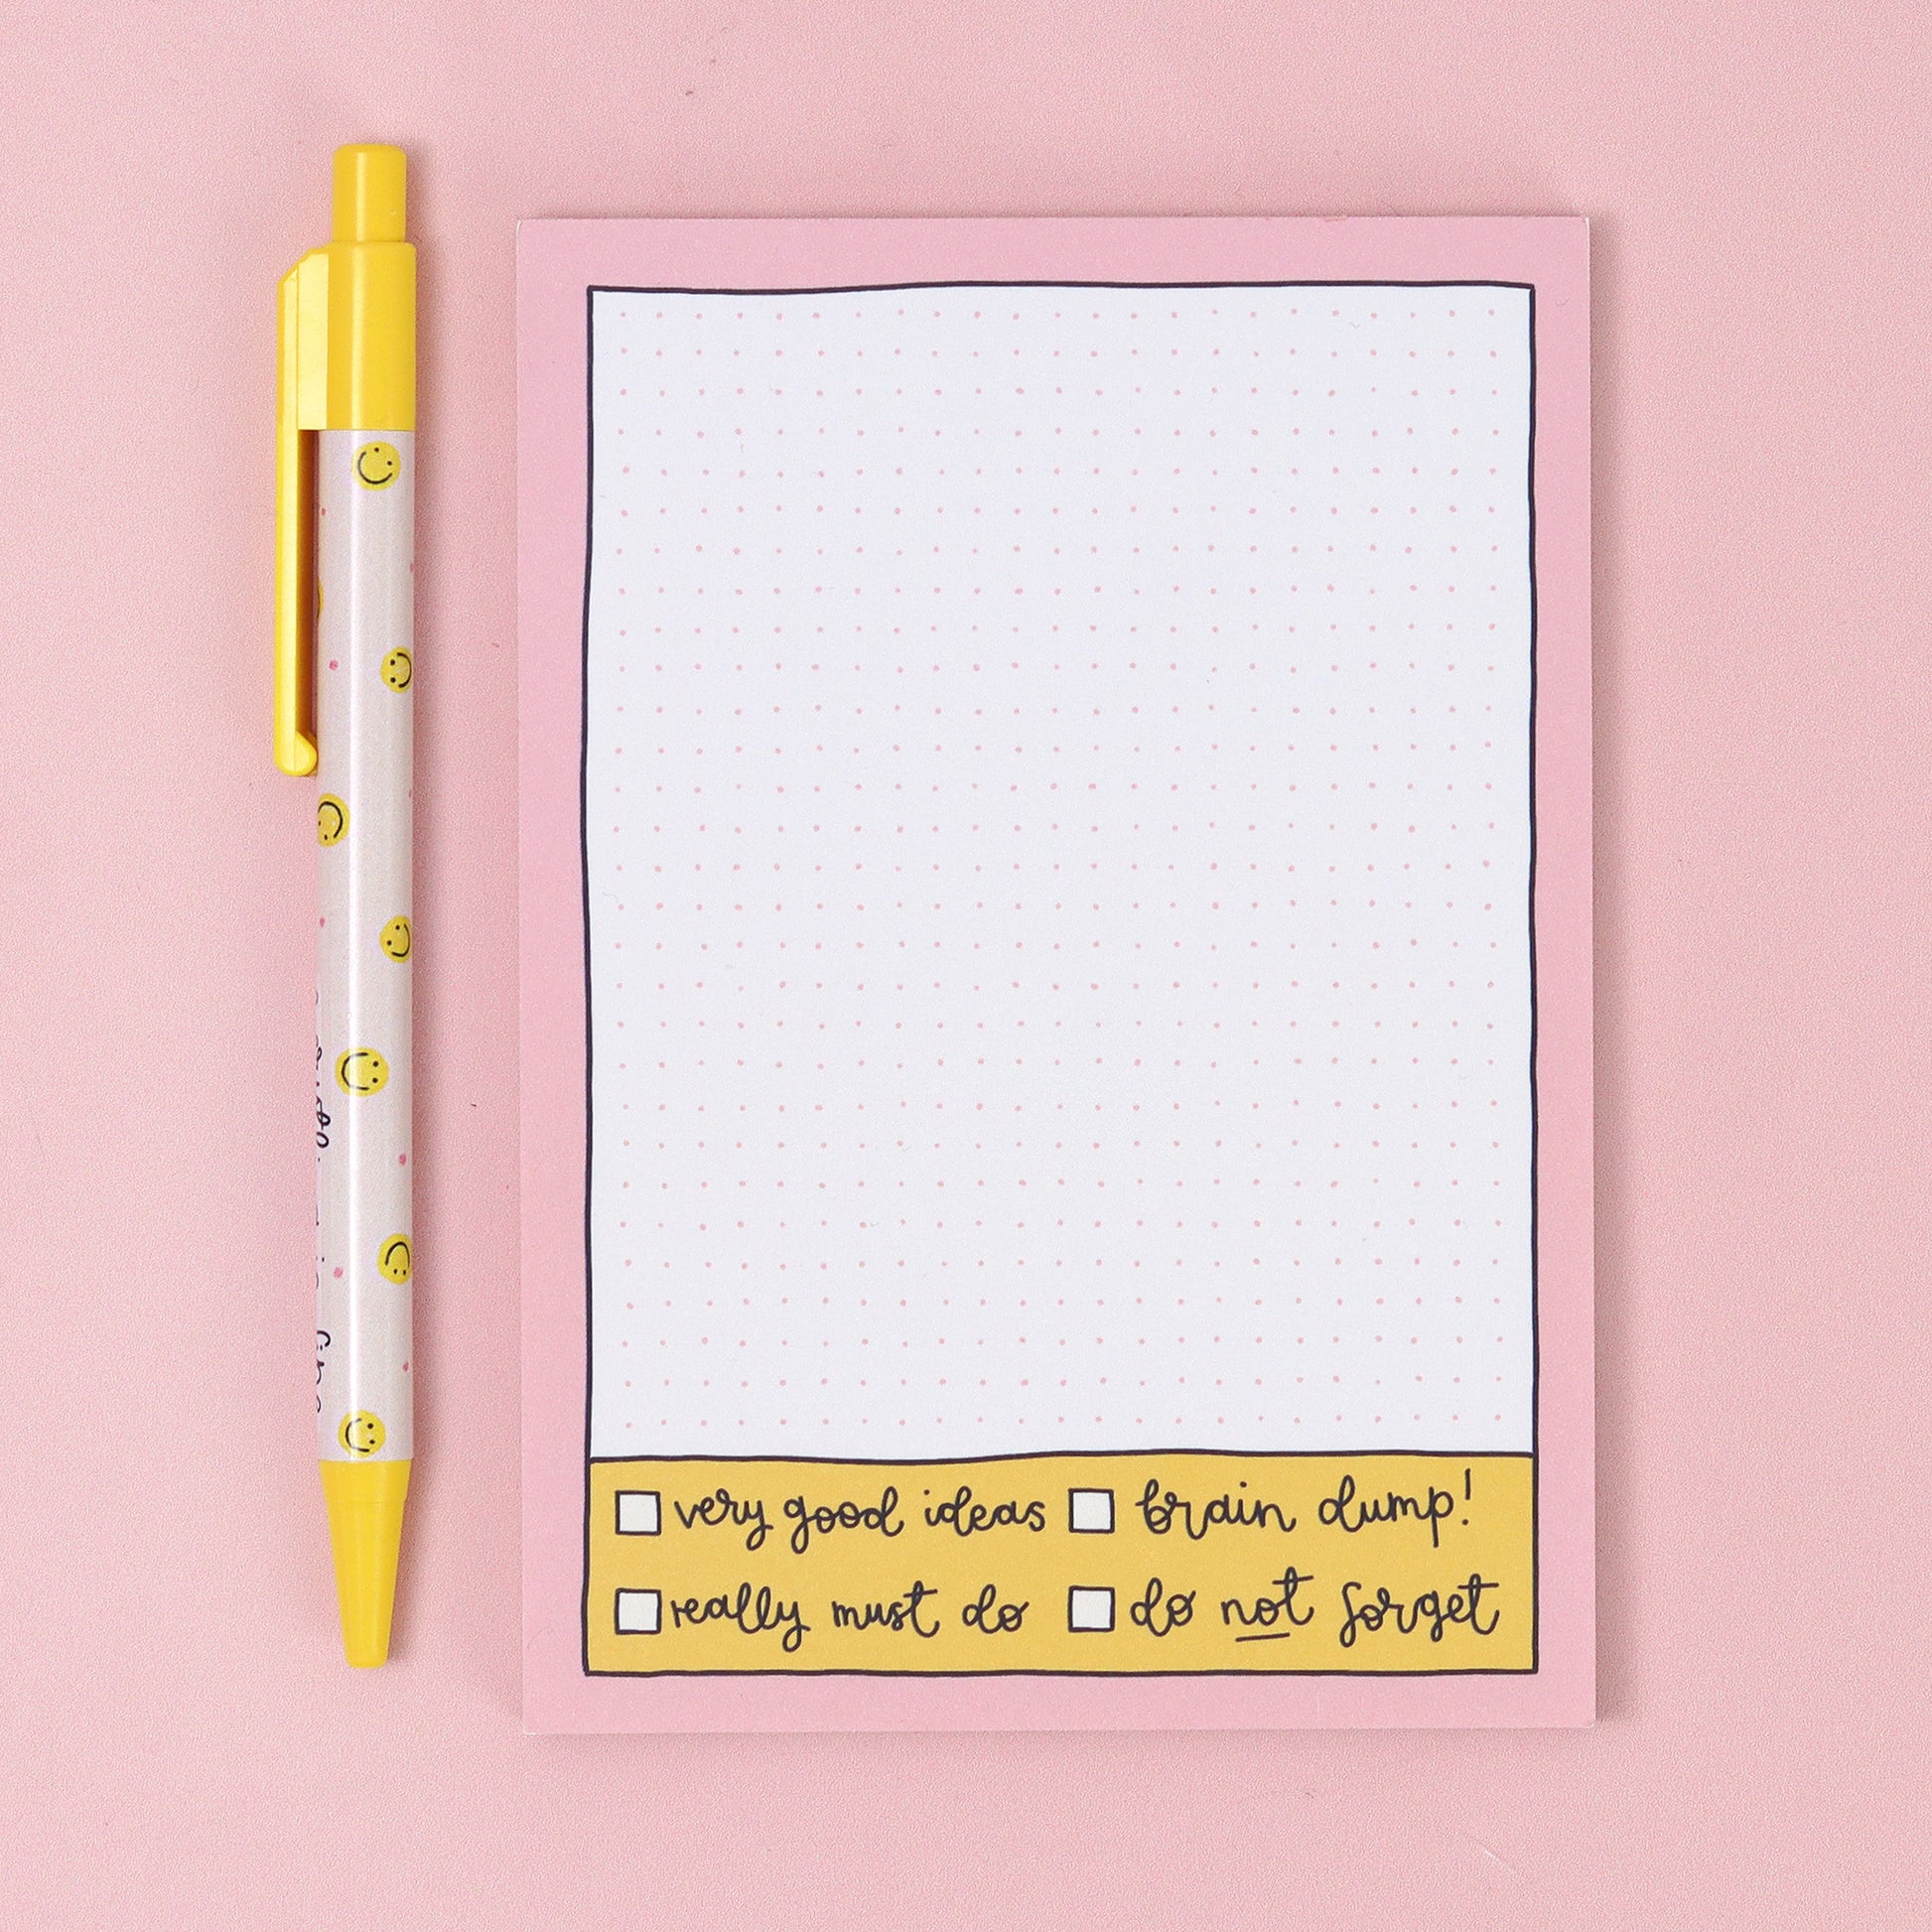 very good ideas
brain dump!
really must do
do not forget